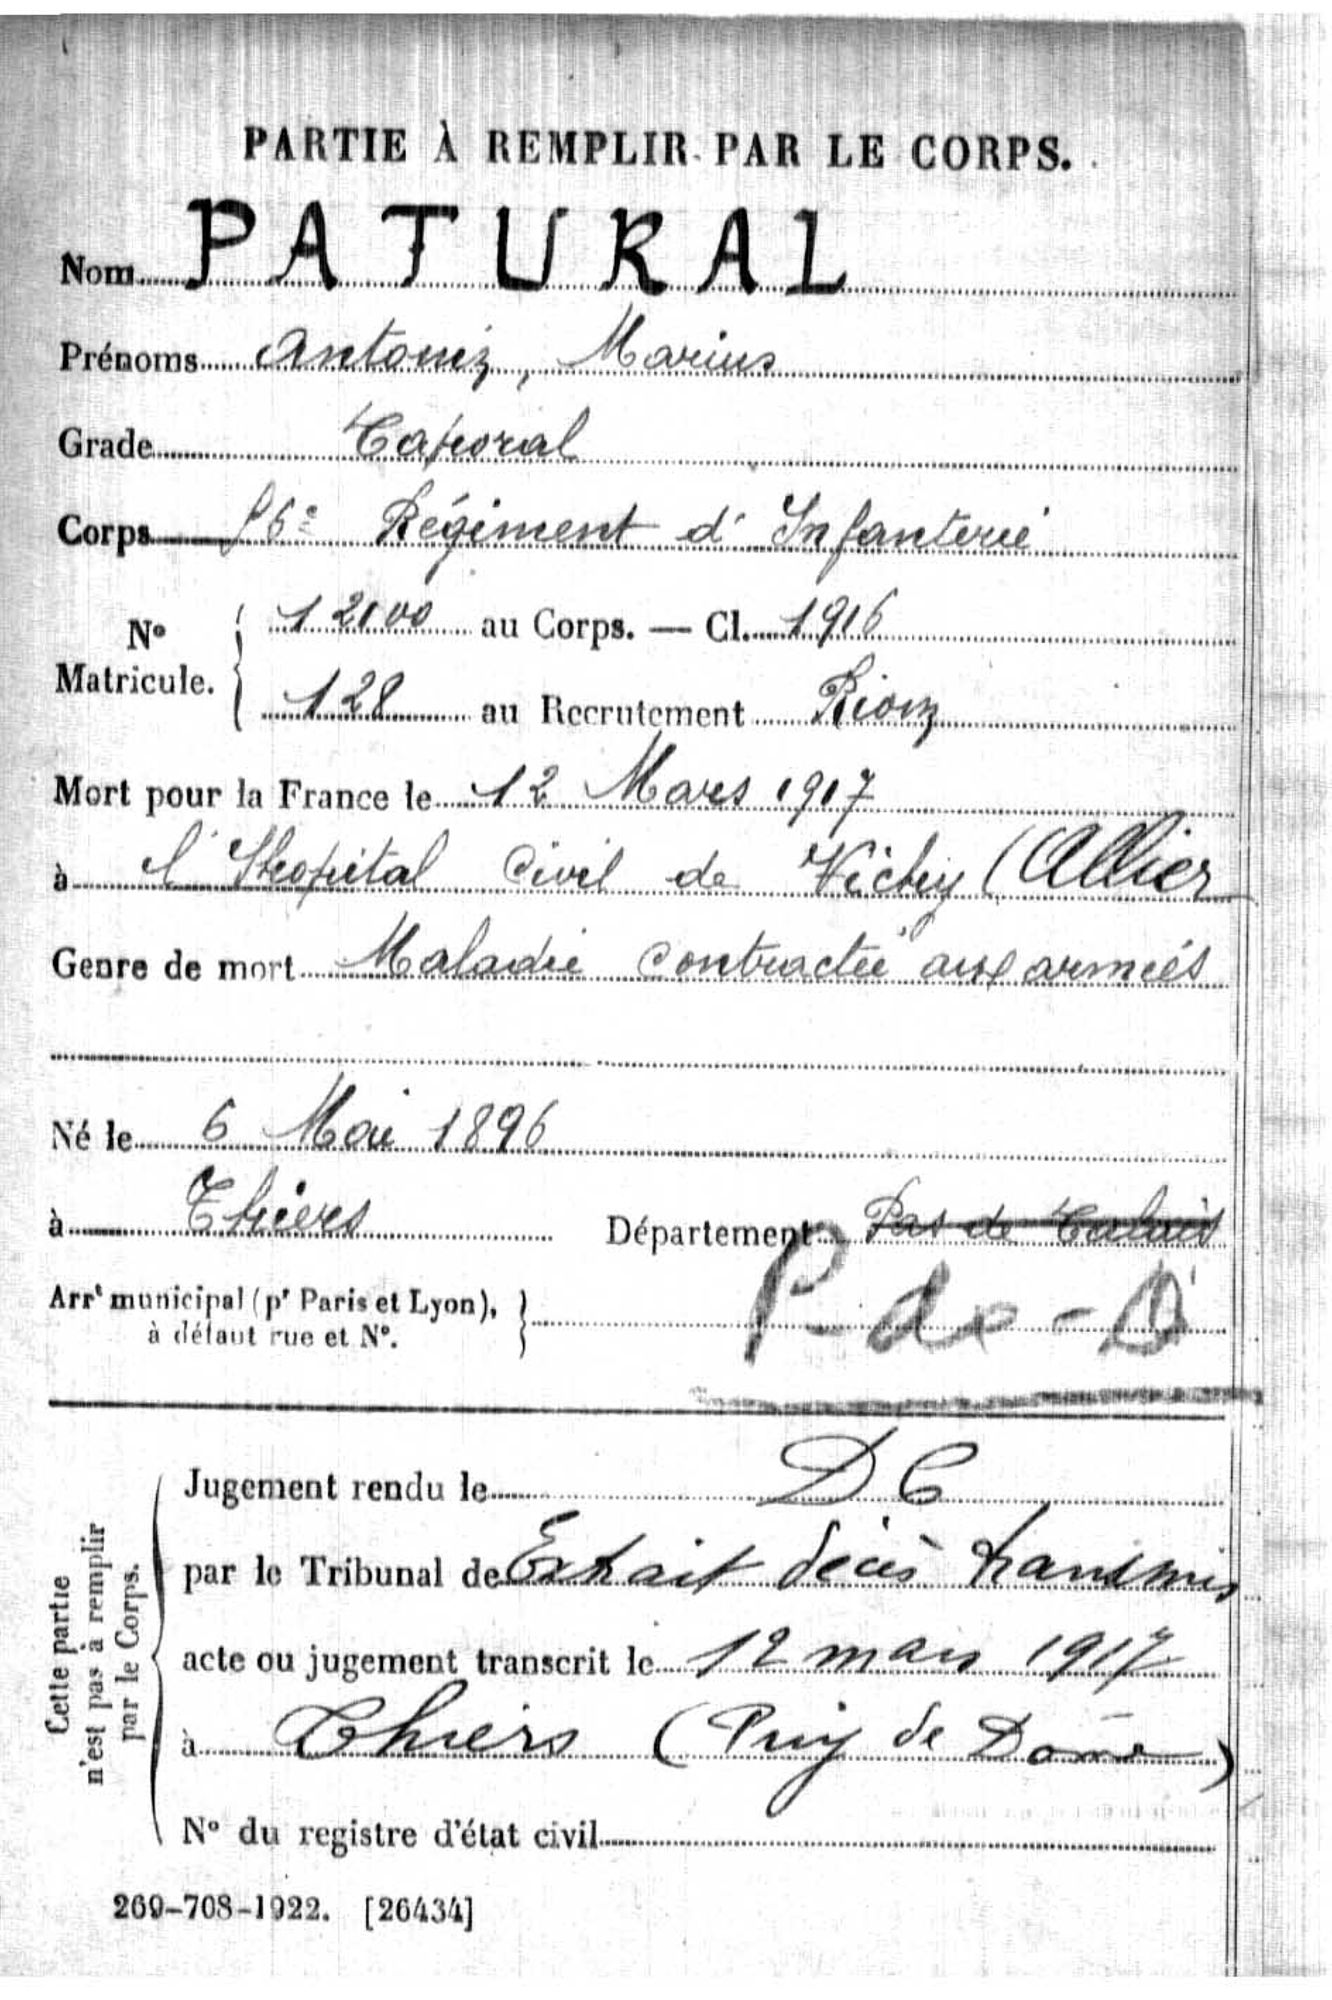 PARTIE À REMPLIR PAR LE CORPS.
Nom PATURAL
Prénoms Antonin, Marius
Grade Caporal
Corps 86e Régiment d'Infanterie
No Matricule. { 12100 au Corps. — Cl. 1916
128 au Recrutement Riom
Mort pour la France le 12 Mars 1917
à l'Hopital Civil de Vichy (Allier
Genre de mort Maladie contractée aux armées
Né le 6 Mai 1896
à Thiers Département Pas de Calais
Arrt municipal (pr Paris et Lyon), à défaut rue et No. } P-de-D
Cette partie n'est pas à remplir par le Corps.
Jugement rendu le DC
par le Tribunal de Extrait décès transmis
acte ou jugement transcrit le 12 mars 1917
à Thiers (Puy de Dôme)
No du registre d'état civil
269-708-1922. [26434]